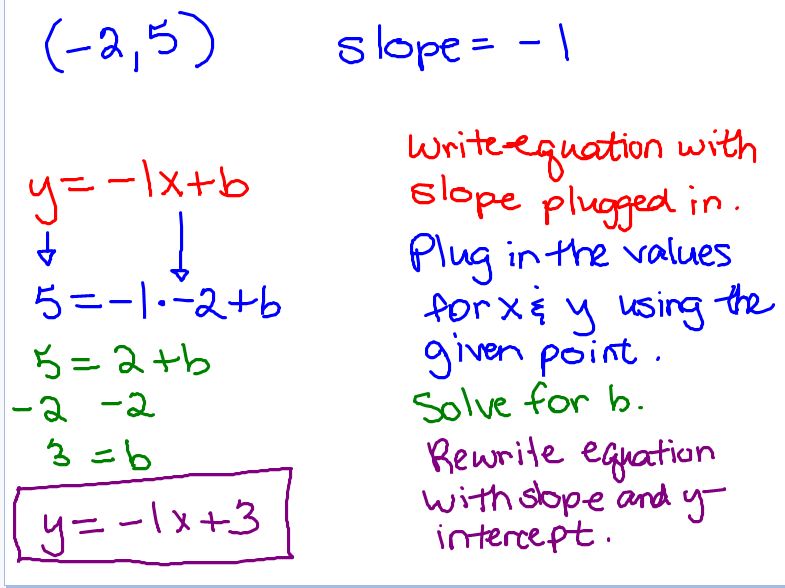 (-2,5) slope = -1
y = -1x+b
Write equation with
slope plugged in.
5 = -1·-2+b
Plug in the values
for x & y using the
given point.
5 = 2+b
-2 -2
3 = b
Solve for b.
y = -1x+3
Rewrite equation
with slope and y-
intercept.